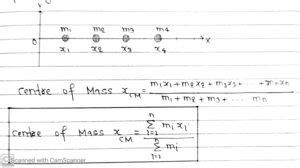 m₁ m₂ m₃ m₄
0 x
x₁ x₂ x₃ x₄
Centre of Mass x_CM = m₁x₁ + m₂x₂ + m₃x₃ + ... + mₙxₙ / m₁ + m₂ + m₃ + ... mₙ
Centre of Mass x_CM = n Σ i=1 mᵢ xᵢ / n Σ i=1 mᵢ
Scanned with CamScanner